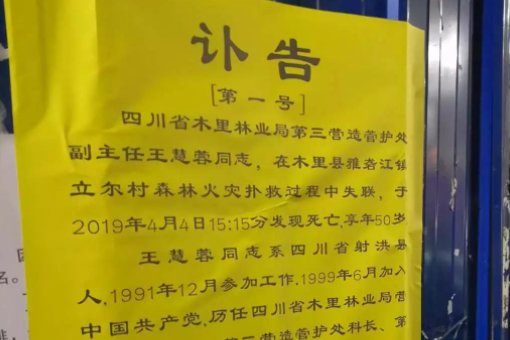 讣告
[第一号]
四川省木里林业局第三营造管护处
副主任王慧蓉同志，在木里县雅砻江镇
立尔村森林火灾扑救过程中失联，于
2019年4月4日15:15分发现死亡,享年50岁
王慧蓉同志系四川省射洪县
人,1991年12月参加工作.1999年6月加入
中国共产党,历任四川省木里林业局营
营造管护处科长、第
名。